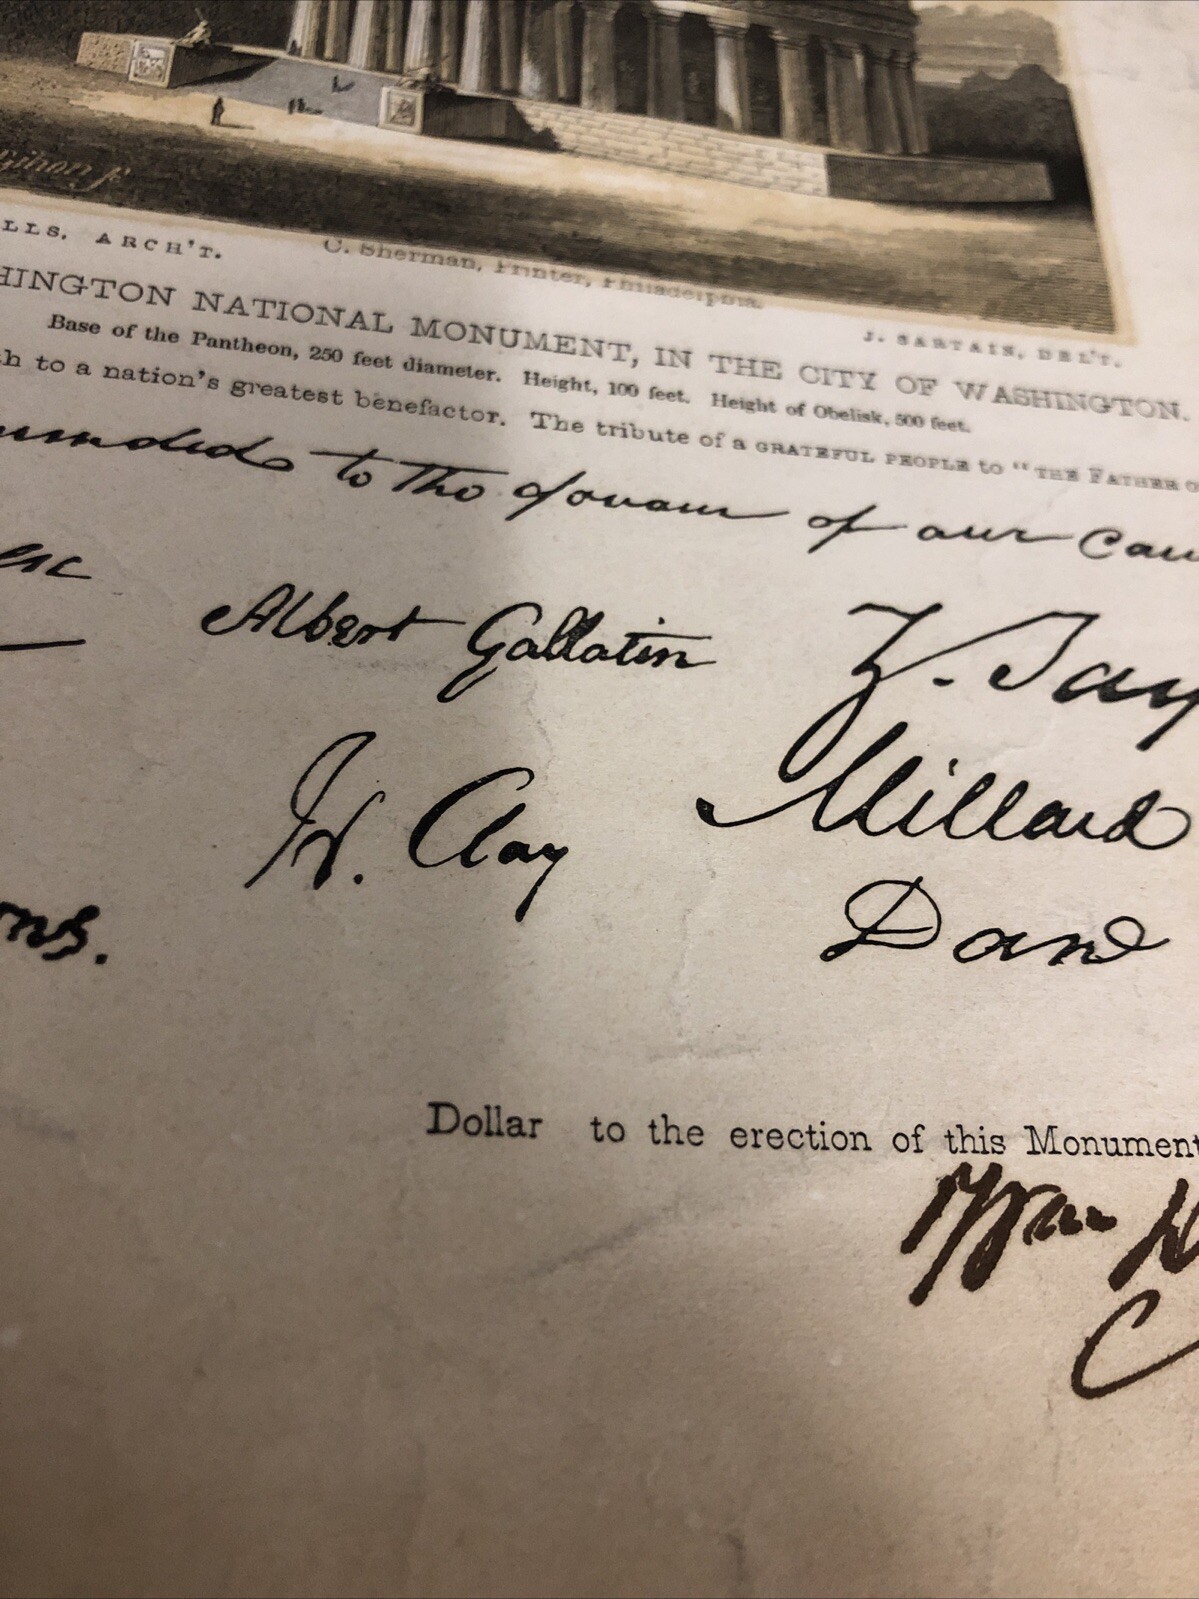 LLS, ARCH'T.
C. Sherman, Printer, Philadelphia.
J. SARTAIN, DEL'T.
HINGTON NATIONAL MONUMENT, IN THE CITY OF WASHINGTON.
Base of the Pantheon, 250 feet diameter. Height, 100 feet. Height of Obelisk, 500 feet.
h to a nation's greatest benefactor. The tribute of a GRATEFUL PEOPLE to "THE FATHER O
to the favour of our Coun
Albert Gallatin
Z. Tay
H. Clay
Millard
ns.
Dollar to the erection of this Monument
Wm